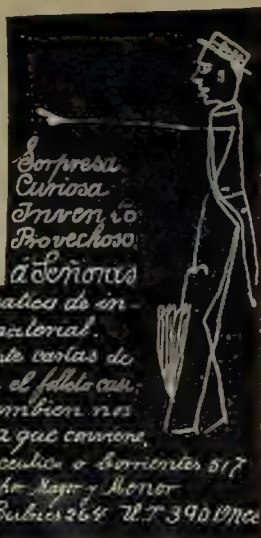 Sorpresa
Curiosa
Invento
Provechoso
á Señoras
de in-
material.
cartas de
el folleto
tambien nos
que conviene,
o Corrientes 517
por Mayor y Menor
264 U.T 390